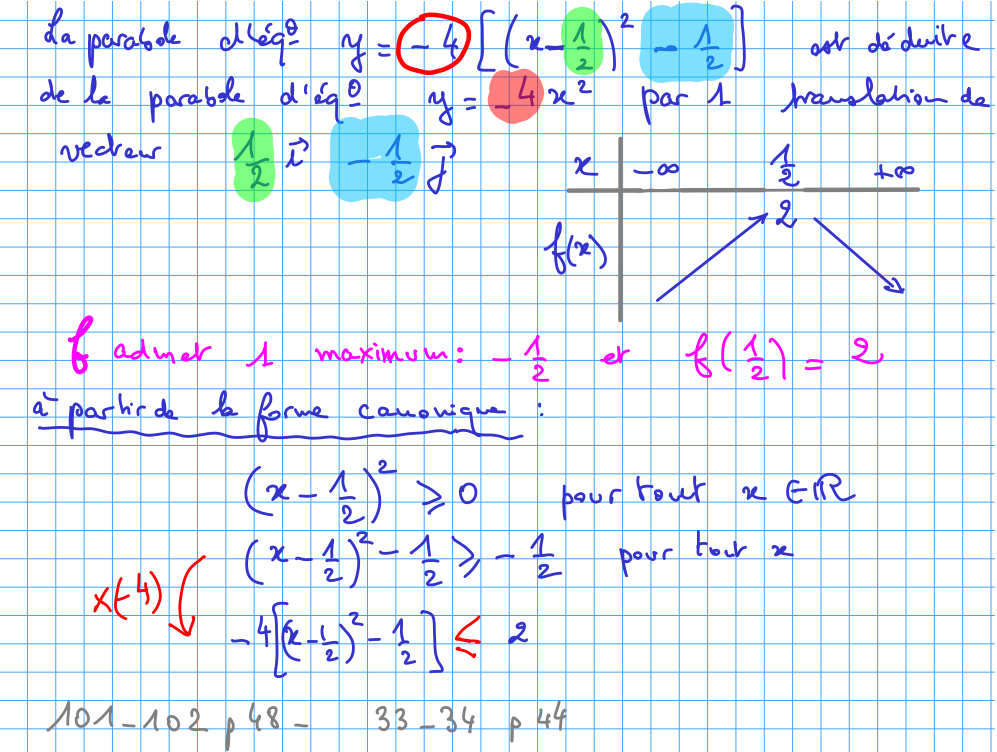 La parabole d'éqº y = -4 [(x - 1/2)² - 1/2] est déduite
de la parabole d'éqº y = -4x² par 1 translation de
vecteur 1/2 i⃗ - 1/2 j⃗
x -∞ 1/2 +∞
f(x) 2
f admet 1 maximum : - 1/2 et f(1/2) = 2
à partir de la forme canonique :
(x - 1/2)² ⩾ 0 pour tout x ∈ ℝ
(x - 1/2)² - 1/2 ⩾ - 1/2 pour tout x
x(-4)
-4[(x - 1/2)² - 1/2] ≤ 2
101 - 102 p 48 - 33 - 34 p 44